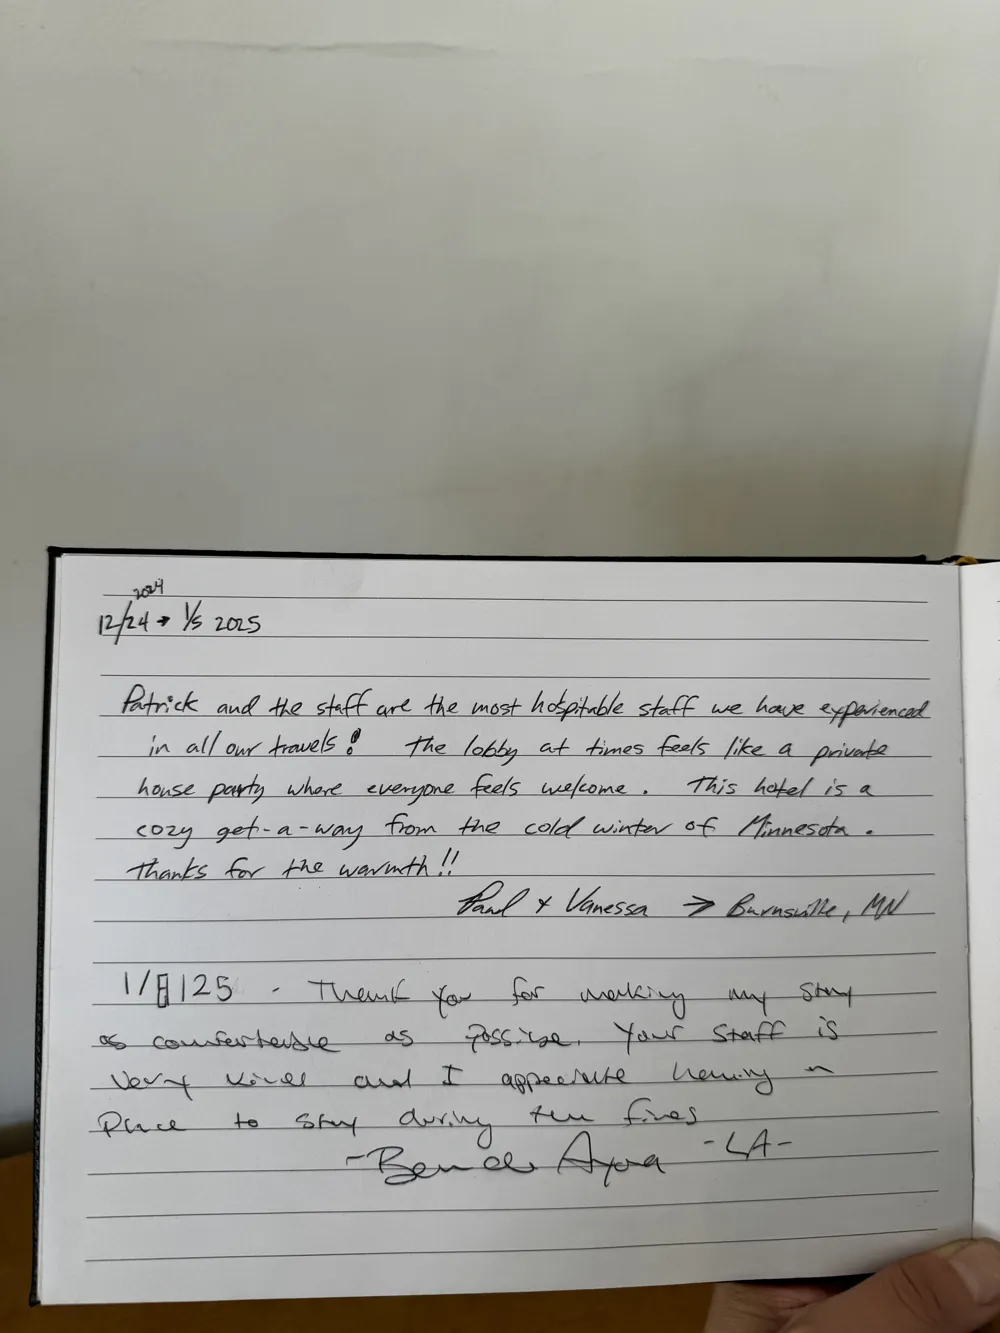 2024
12/24 → 1/5 2025
Patrick and the staff are the most hospitable staff we have experienced
in all our travels! The lobby at times feels like a private
house party where everyone feels welcome. This hotel is a
cozy get-a-way from the cold winter of Minnesota.
Thanks for the warmth!!
Paul + Vanessa → Burnsville, MN
Thank you for making my stay
as comfortable as possible. Your staff is
very kind and I appreciate having a
place to stay during the fires
-LA-